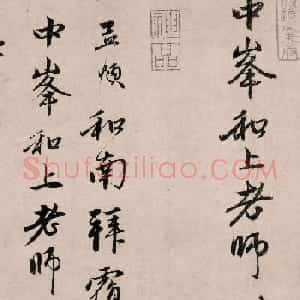 中峯和上老师
孟頫和南拜覆
中峯和上老师
神品
Shufaziliao.com